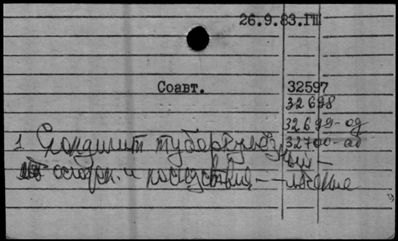 26.9.83.ГШ
Соавт. 32597
32698
32699-од
1 Спондилит туберкулезный 32700-ад
осложн. и последствия - лечение